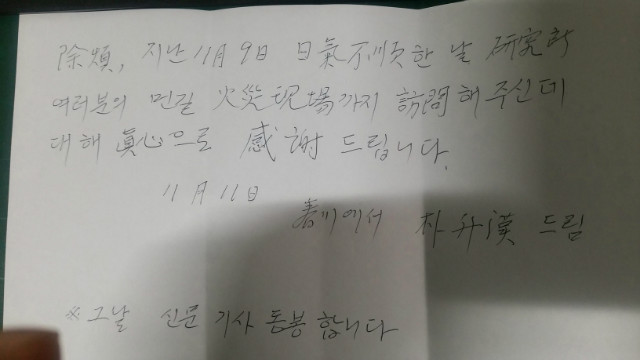 除煩, 지난 11月 9日 日氣不順한 날 研究所
여러분의 먼길 火災現場까지 訪問해 주신데
대해 眞心으로 感謝 드립니다.
11月 11日
春川에서 朴升漢 드림
※그날 신문 기사 동봉 합니다